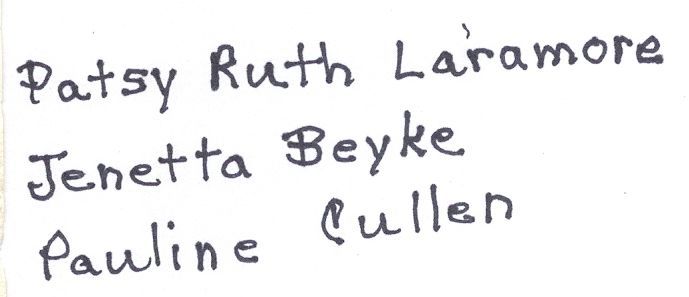 Patsy Ruth Laramore
Jenetta Beyke
Pauline Cullen